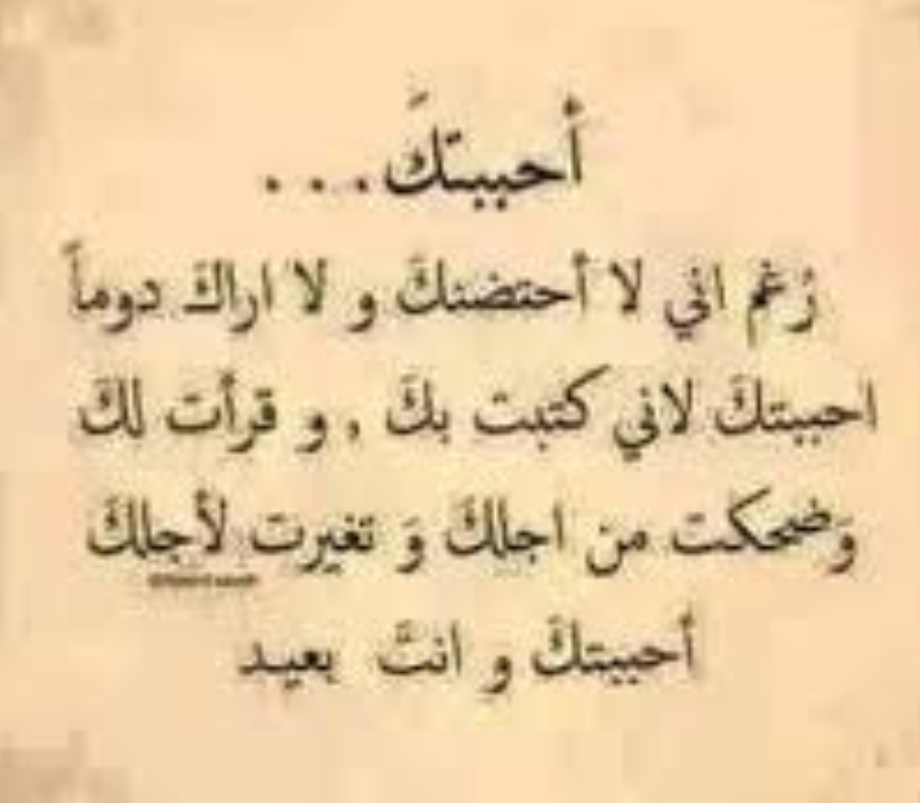 أحببتكَ...
رُغم اني لا أحتضنكَ و لا اراكَ دوماً
احببتكَ لاني كتبت بكَ , و قرأت لكَ
وَضحكت من اجلكَ وَ تغيرت لأجلكَ
أحببتكَ و انتَّ بعيد